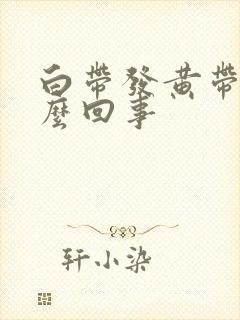 白带发黄带
麼回事
轩小染